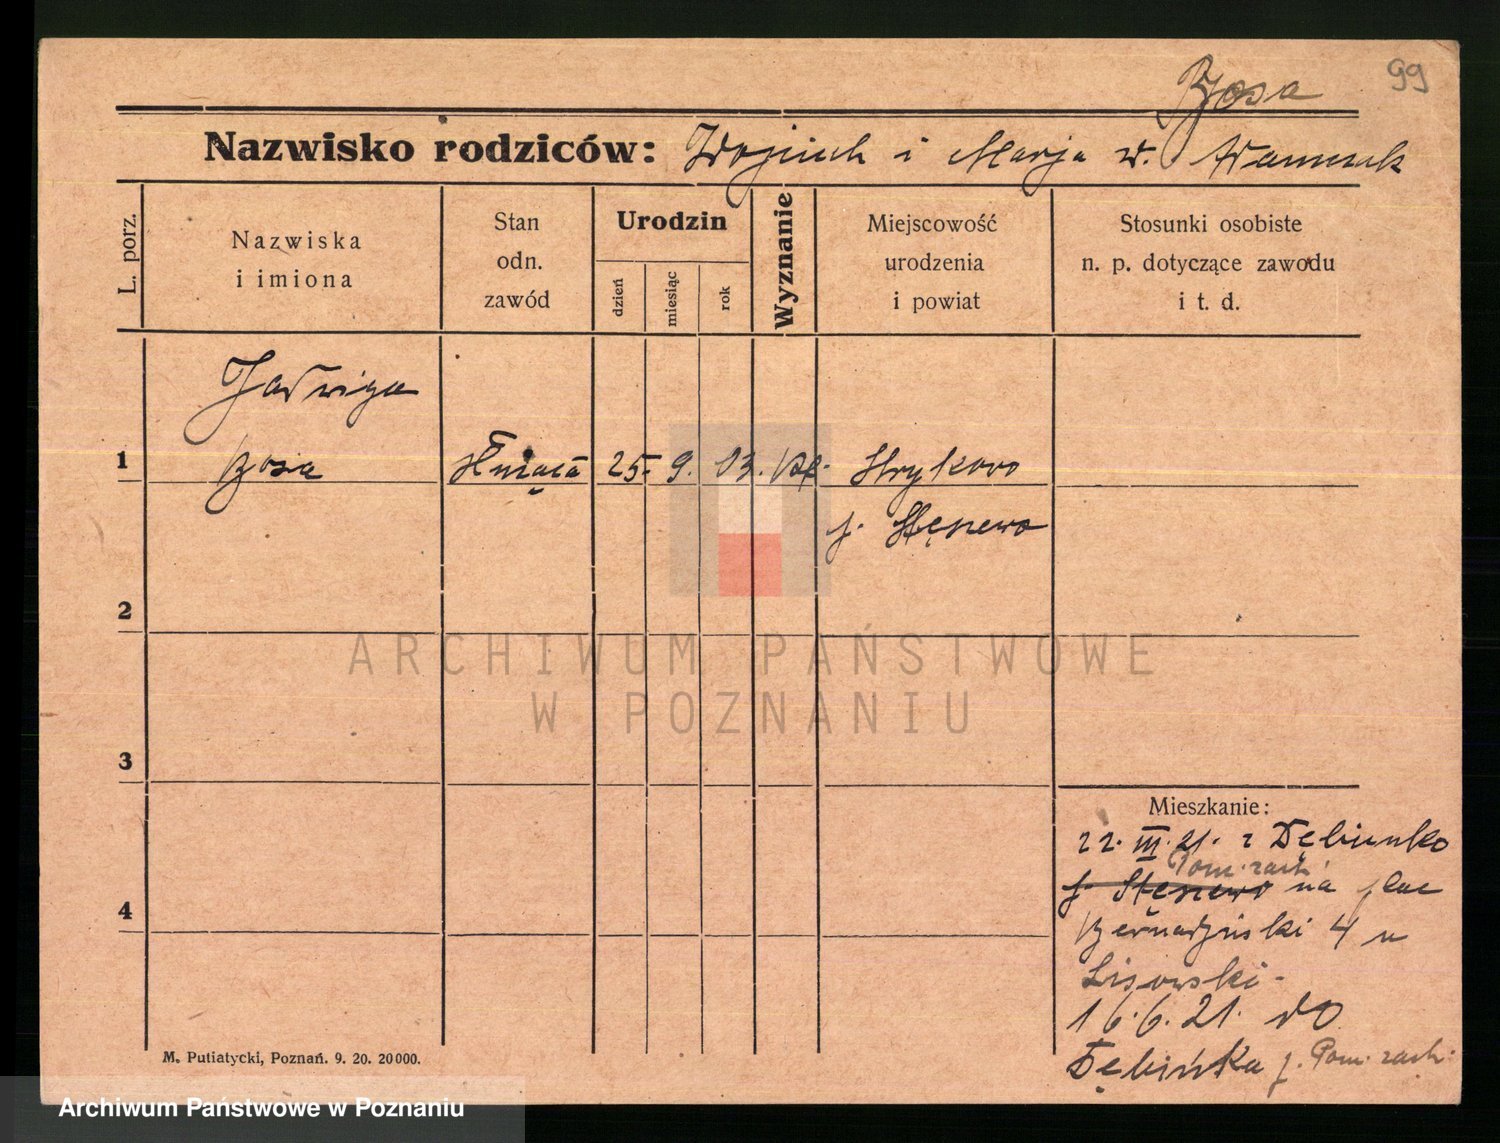 99
Bosa
Nazwisko rodziców: Wojciech i Marja z.
L. porz.
Nazwiska
i imiona
Stan
odn.
zawód
Urodzin
dzień
miesiąc
rok
Wyznanie
Miejscowość
urodzenia
i powiat
Stosunki osobiste
n. p. dotyczące zawodu
i t. d.
Jadwiga
1 Bosa służąca 25. 9. 03. Strykowo
p. Stęszewo
2
3
4
Mieszkanie:
22. III. 21. z Dębienko
Pom. zach.
p. Stęszewo na plac
Bernadyński 4 u
Lisowski -
16.6.21. do
Dębińka p. Pom. zach.
M. Putiatycki, Poznań. 9. 20. 20000.
ARCHIWUM PAŃSTWOWE
W POZNANIU
Archiwum Państwowe w Poznaniu